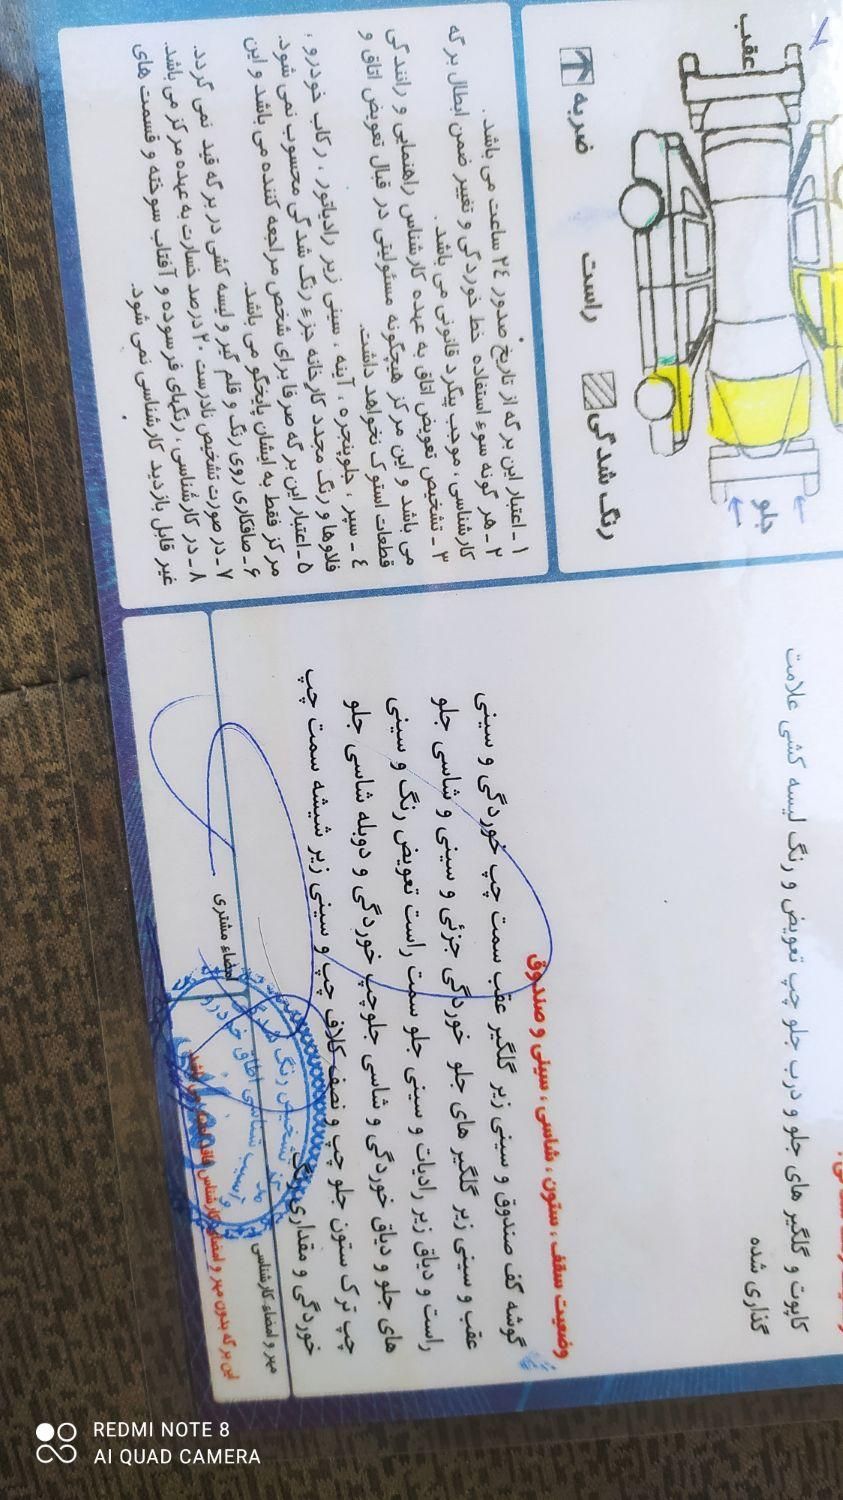 عقب
جلو
ضربه
راست
رنگ شدگی
کاپوت و گلگیر های جلو و درب جلو چپ تعویض و رنگ لیسه کشی علامت
گذاری شده
وضعیت سقف ، ستون ، شاسی ، سینی و صندوق
گوشه کف صندوق و سینی زیر گلگیر عقب سمت چپ خوردگی و سینی
عقب و سینی زیر گلگیر های جلو خوردگی جزئی و سینی و شاسی جلو
راست و دیاق زیر رادیات و سینی جلو سمت راست تعویض رنگ و سینی
های جلو و دیاق خوردگی و شاسی جلوچپ خوردگی و دوبله شاسی جلو
چپ ترک ستون جلو چپ و نصف کلاف چپ و سینی زیر شیشه سمت چپ
خوردگی و مقداری رنگ
۱ـ اعتبار این برگه از تاریخ صدور ۲٤ ساعت می باشد .
۲ـ هر گونه سوء استفاده خط خوردگی و تغییر ضمن ابطال برگه
کارشناسی ، موجب پیگرد قانونی می باشد.
۳ـ تشخیص تعویض اتاق به عهده کارشناس راهنمایی و رانندگی
می باشد و این مرکز هیچگونه مسئولیتی در قبال تعویض اتاق و
قطعات استوک نخواهد داشت.
٤ـ سپر ، جلوپنجره ، آینه ، سینی زیر رادیاتور ، رکاب خودرو ،
فلاوها و رنگ مجدد کارخانه جزء رنگ شدگی محسوب نمی شود.
۵ـ اعتبار این برگه صرفا برای شخص مراجعه کننده می باشد و این
مرکز فقط به ایشان پاپخگو می باشد.
۶ـ صافکاری روی رنگ و قلم گیر و لیسه کشی در برگه قید نمی گردد.
۷ـ در صورت تشخیص نادرست ۲۰ درصد خسارت به عهده مرکز می باشد.
۸ـ در کارشناسی ، رنگهای فرسوده و آفتاب سوخته و قسمت های
غیر قابل بازدید کارشناسی نمی شود.
امضاء مشتری
مهر و امضاء کارشناسی
این برگه بدون مهر و امضاء کارشناس فاقد اعتبار می باشد
REDMI NOTE 8
AI QUAD CAMERA